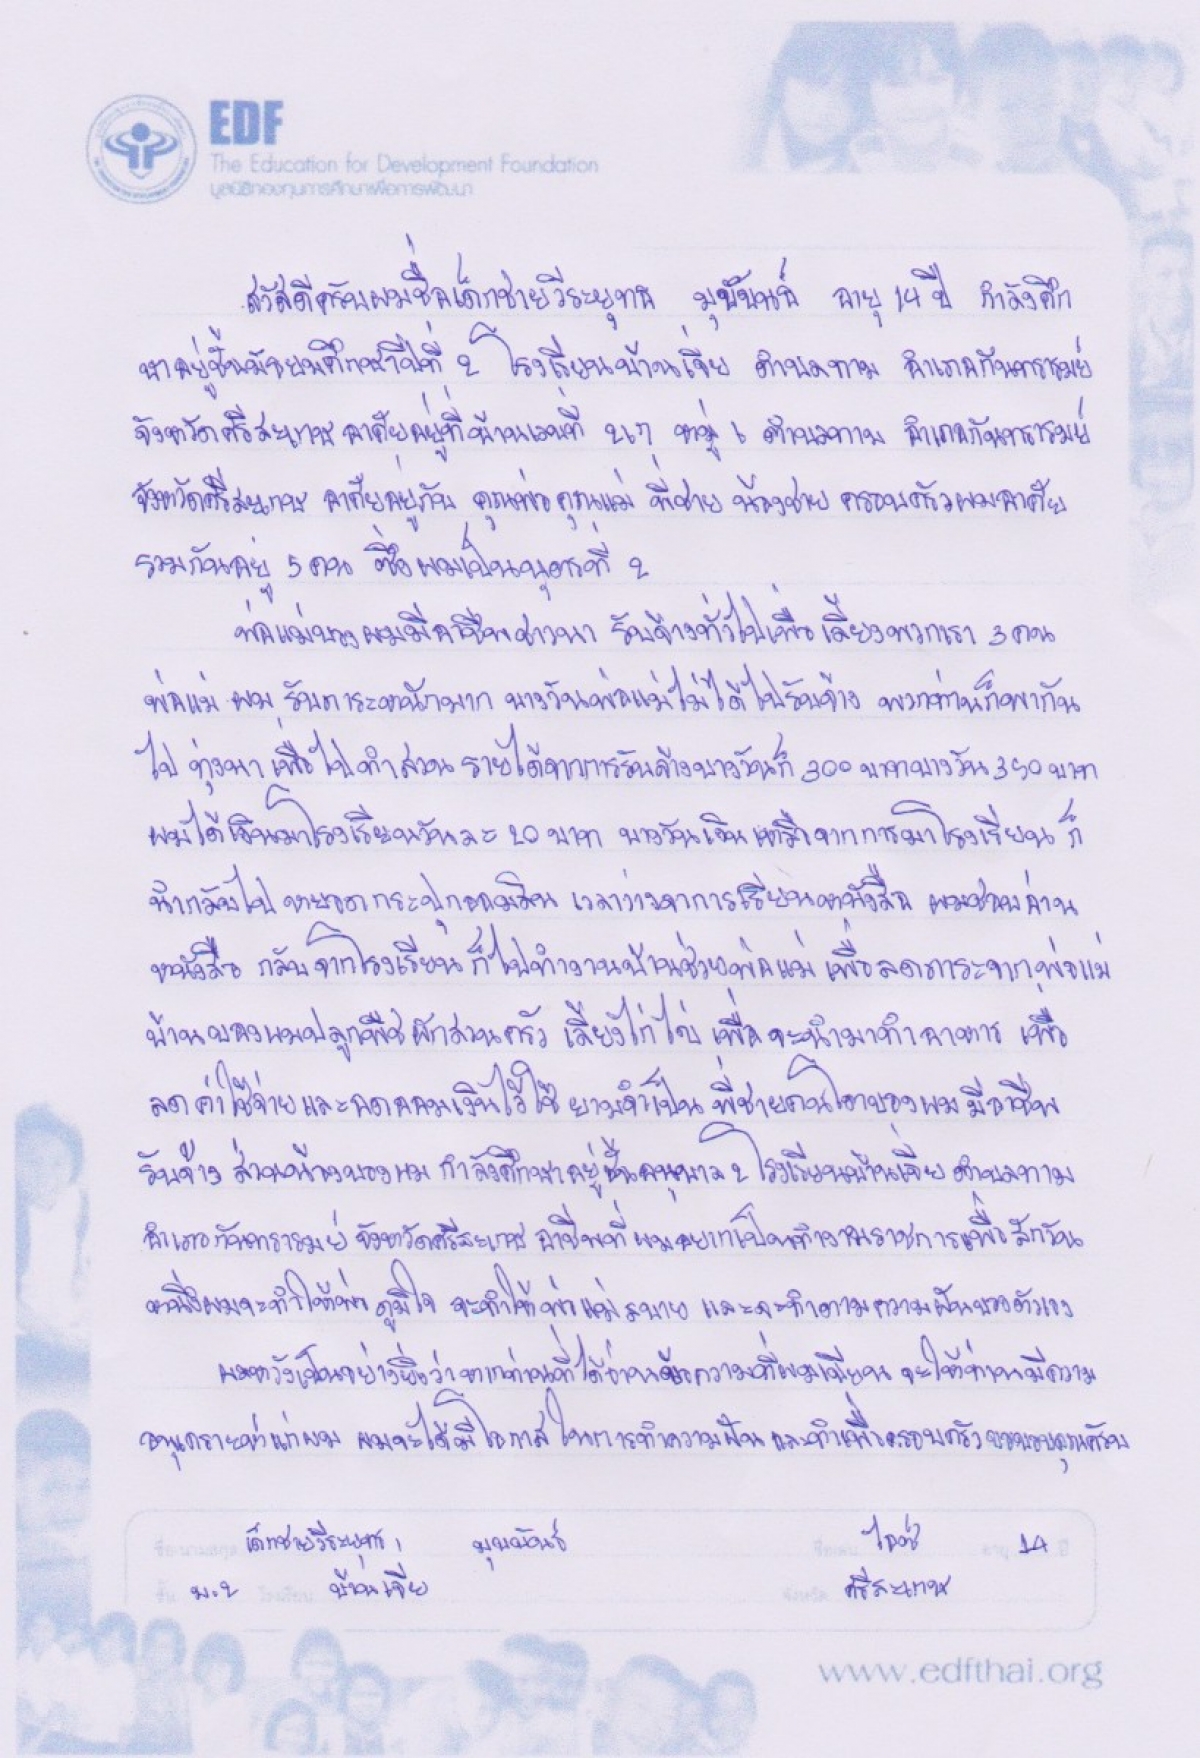 EDF
The Education for Development Foundation
มูลนิธิกองทุนการศึกษาเพื่อการพัฒนา
สวัสดีครับผมชื่อเด็กชายวีระยุทธ อายุ 14 ปี กำลังศึก
ษาอยู่ชั้นมัธยมศึกษาปีที่ 2 โรงเรียนบ้านเจี่ย ตำบลทาม อำเภอกันทรารมย์
จังหวัดศรีสะเกษ อาศัยอยู่ที่บ้านเลขที่ หมู่ 6 ตำบลทาม อำเภอกันทรารมย์
จังหวัดศรีสะเกษ อาศัยอยู่กับ คุณพ่อ คุณแม่ พี่ชาย น้องชาย ครอบครัวผมอาศัย
รวมกันอยู่ 5 คน ซึ่งผมเป็นบุตรที่ 2
พ่อแม่ของผมมีอาชีพชาวนา รับจ้างทั่วไปเพื่อเลี้ยงพวกเรา 3 คน
พ่อแม่ ผม รับภาระหนักมาก บางวันพ่อแม่ไม่ได้ไปรับจ้าง พวกท่านก็พากัน
ไป ทุ่งนา เพื่อไปทำสวน รายได้จากการรับจ้างบางวันก็ 300 บาทบางวัน 350 บาท
ผมได้เงินมาโรงเรียนวันละ 20 บาท บางวันเงินเหลือจากการมาโรงเรียน ก็
นำกลับไป หยอดกระปุกออมสิน เวลาว่างจาการเรียนหนังสือ ผมชอบอ่าน
หนังสือ กลับจากโรงเรียน ก็ไปทำงานบ้านช่วยพ่อแม่ เพื่อลดภาระจากพ่อแม่
บ้านของผมปลูกพืชผักสวนครัว เลี้ยงไก่ไข่ เพื่อจะนำมาทำอาหาร เพื่อ
ลดค่าใช้จ่ายและอดออมเงินไว้ใช้ ยามจำเป็น พี่ชายคนโตของผม มีอาชีพ
รับจ้าง ส่วนน้องของผม กำลังศึกษาอยู่ชั้นอนุบาล 2 โรงเรียนบ้านเจี่ย ตำบลทาม
อำเภอกันทรารมย์ จังหวัดศรีสะเกษ อาชีพที่ผมอยากเป็นทำงานราชการเพื่อสักวัน
หนึ่งผมจะทำให้พ่อ ภูมิใจ จะทำให้พ่อแม่สบาย และจะทำตามความฝันของตัวเอง
ผมหวังเป็นอย่างยิ่งว่าหากท่านที่ได้อ่านข้อความที่ผมเขียน จะให้ท่านมีความ
อนุเคราะห์แก่ผม ผมจะได้มีโอกาสในการทำความฝัน และทำเพื่อครอบครัว ขอขอบคุณครับ
เด็กชายวีระยุทธ 14 ปี
ชั้น ม.2 โรงเรียน บ้านเจี่ย จังหวัด ศรีสะเกษ
www.edfthai.org